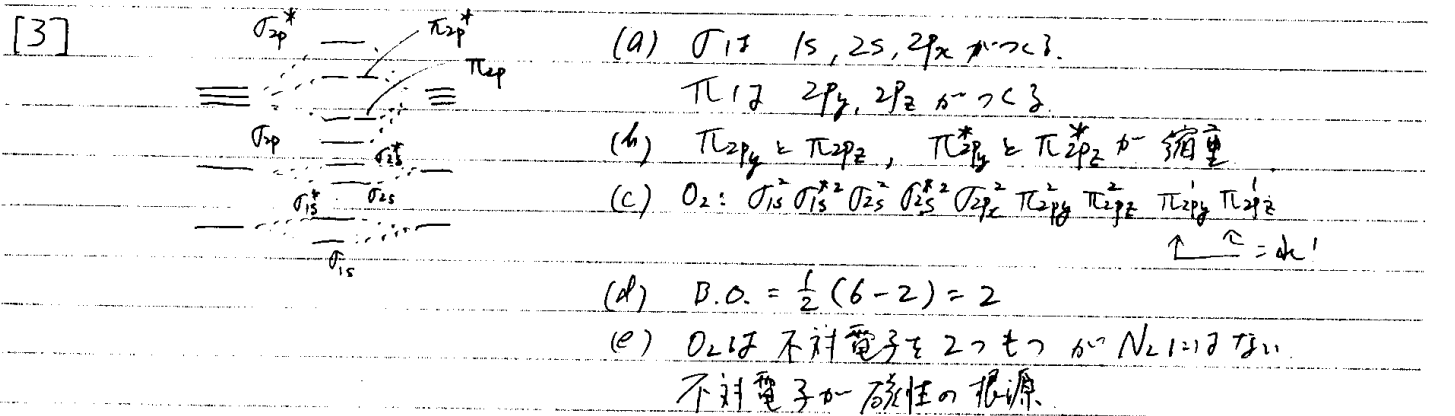 [3]
σ2p*
π2p*
π2p
σ2p
σ2s*
σ2s
σ1s*
σ1s
(a) σは 1s, 2s, 2px がつくる.
πは 2py, 2pz がつくる
(b) π2py と π2pz, π2py* と π2pz* が 縮重
(c) O2: σ1s² σ1s*² σ2s² σ2s*² σ2px² π2py² π2pz² π2py*¹ π2pz*¹
(d) B.O. = 1/2 (6-2) = 2
(e) O2は 不対電子を 2つもつ が N2にはない
不対電子が 磁性の 根源